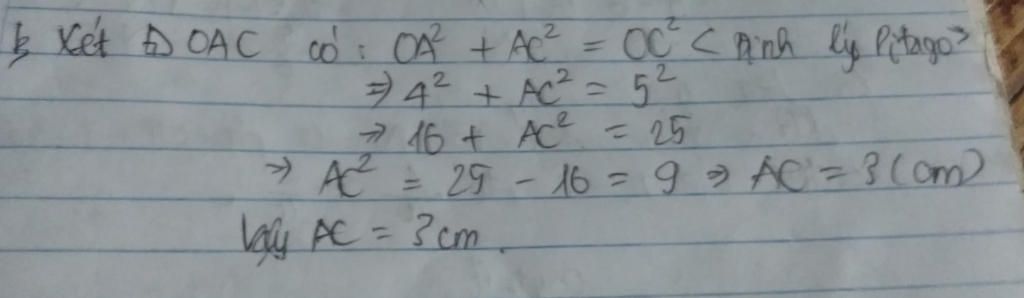 b, Xét △ OAC có : OA² + AC² = OC² < Định lý Pitago >
⇒ 4² + AC² = 5²
⇒ 16 + AC² = 25
⇒ AC² = 25 - 16 = 9 ⇒ AC = 3 (cm)
Vậy AC = 3 cm.